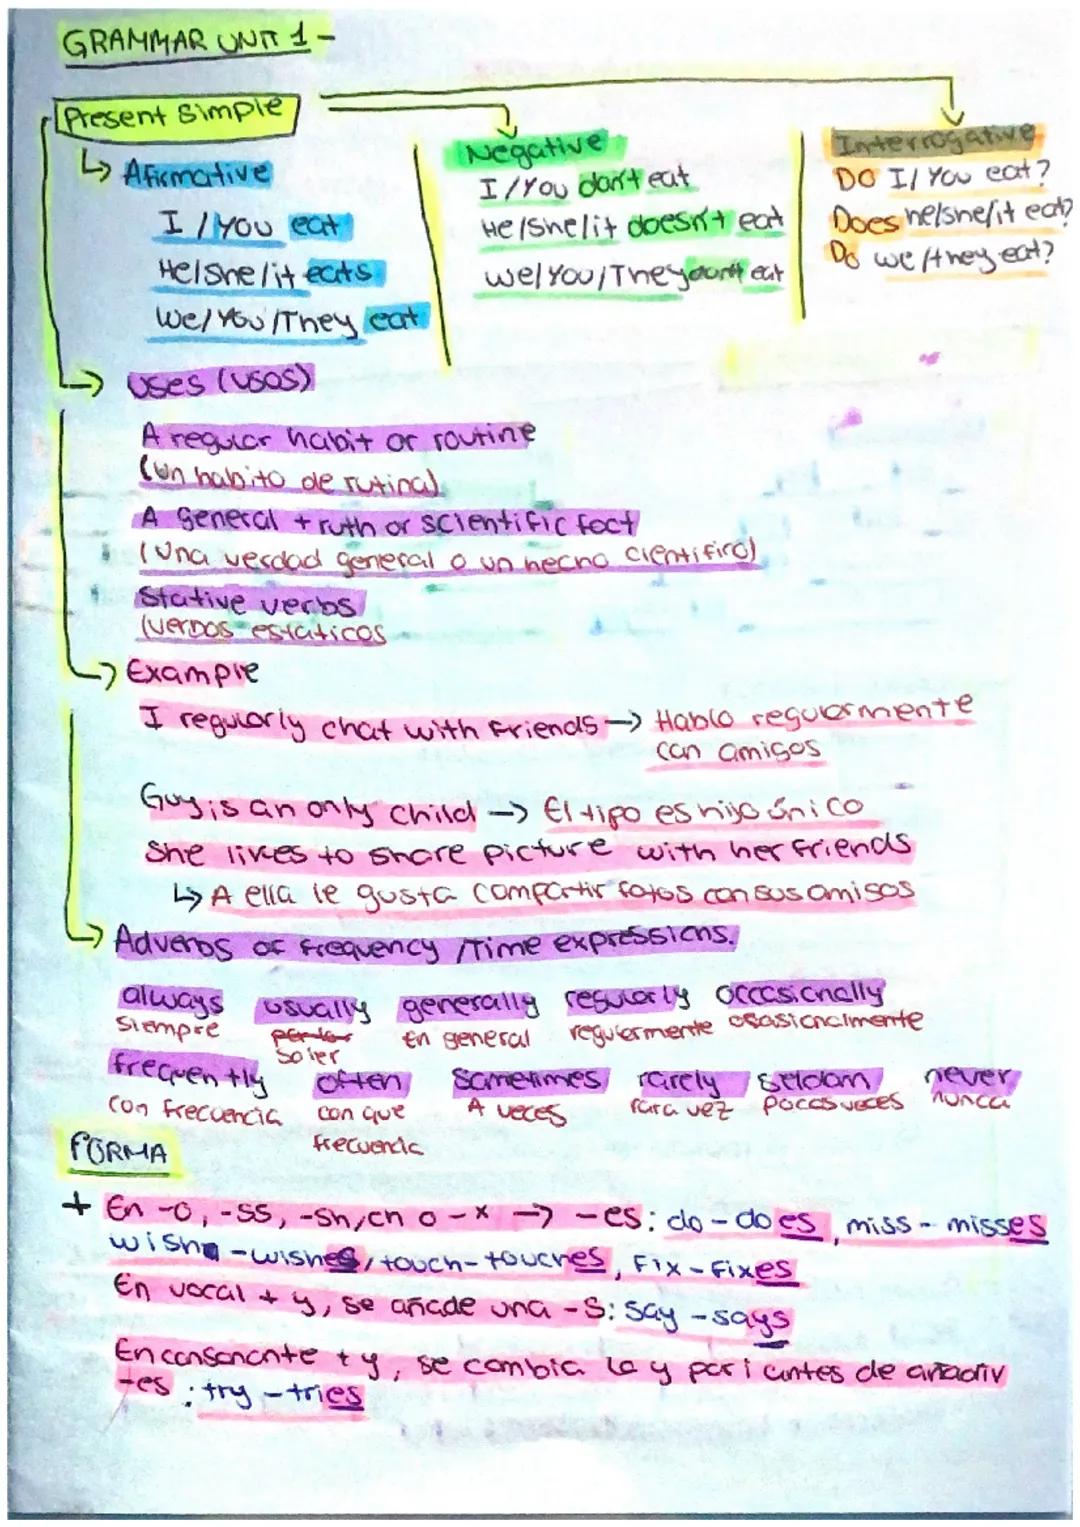 GRAMMAR UNIT 1 -
Present Simple
↳ Afirmative
I / You eat
He/She/it eats
We/You/They eat
Negative
I/You don't eat
He/She/it doesn't eat
We/You/They don't eat
Interrogative
DO I/You eat?
Does he/she/it eat?
Do we/they eat?
→ Uses (usos)
A regular habit or routine
(Un habito de rutina)
A general truth or scientific fact
(Una verdad general o un hecho cientifico)
Stative verbs
(Verbos estaticos
→ Example
I regularly chat with friends → Hablo regularmente
con amigos
Guy is an only child → El tipo es hijo único
She likes to share picture with her friends
↳ A ella le gusta compartir fotos con sus amigos
→ Adverbs of frequency /Time expressions.
always usually generally regularly occasionally
siempre soler en general regularmente ocasionalmente
frequently often sometimes rarely seldom never
con frecuencia con que frecuencia A veces rara vez pocas veces nunca
FORMA
+ En -o, -ss, -sh/ch o -x → -es: do - does, miss - misses
wish - wishes, touch - touches, Fix - fixes
En vocal + y, se añade una -s: say - says
En consonante + y, se cambia la y por i antes de añadir
-es : try - tries